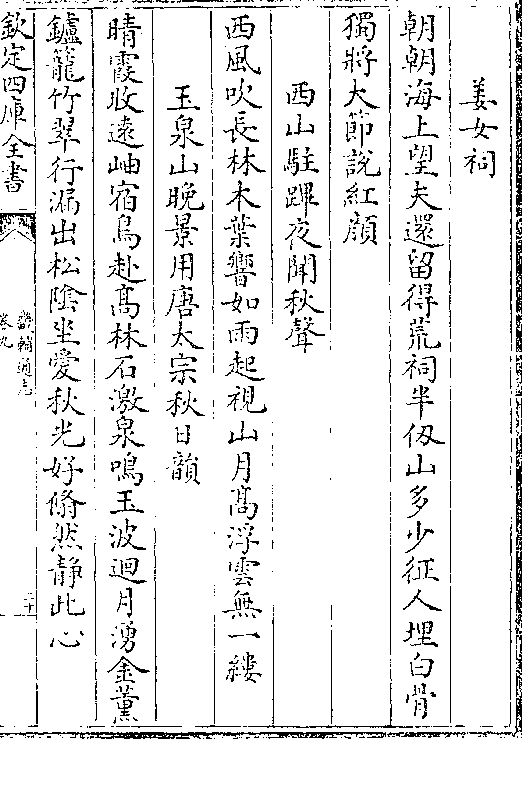 姜女祠
朝朝海上望夫還留得荒祠半仭山多少征人埋白骨
獨將大節說紅顔
西山駐蹕夜聞秋聲
西風吹長林木葉響如雨起視山月髙浮雲無一縷
玉泉山晚景用唐太宗秋日韻
晴霞收遠岫宿鳥赴髙林石激泉鳴玉波迴月湧金薫
鑪籠竹翠行漏出松隂坐愛秋光好翛然静此心
欽定四庫全書
畿輔通志
卷九
二十